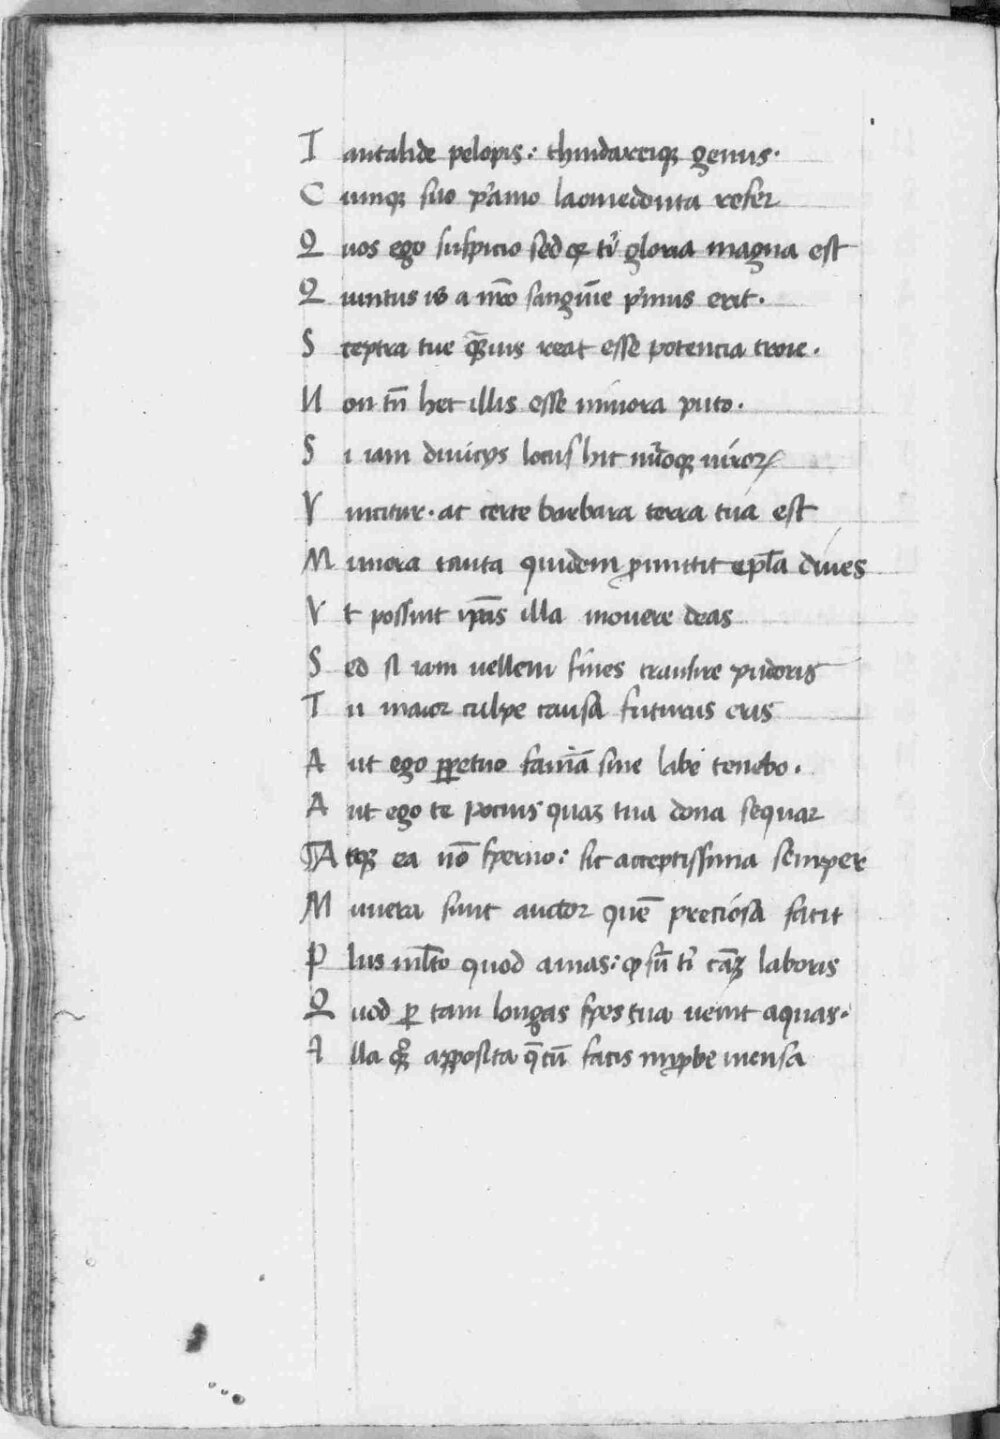 T antalide pelopis: thindareiqȝ genus.
C umqȝ suo p'amo laomedonta refer
Q uos ego suspicio sed qȝ ti' gloria magna est
Q uintus is a nr̄o sanguīe p'mus erit.
S ceptra tue qāuis reat esse potencia troie.
N on tn̄ hec illis esse minora puto.
S i iam diuicijs locus hic nūoqȝ uiroꝝ
V incitur. at certe barbara terra tua est
M unera tanta quidem ꝓmittit epl̄a diues
V t possint ip̄as illa mouere deas
S ed si iam uellem fines transire pudoris
T u maior culpe causa futurus eris
A ut ego ꝑpetuo famā sine labe tenebo.
A ut ego te pocius quaȝ tua dona sequar
¶A tqȝ ea nō sperno: sic acceptissima semper
M unera sunt auctor quē preciosa facit
P lus ml̄to quod amas: ꝙ sū ti' cāȝ laboris
Q uod ꝑ tam longas spes tua uenit aquas.
I lla qȝ apposita q̄ cū facis improbe mensa